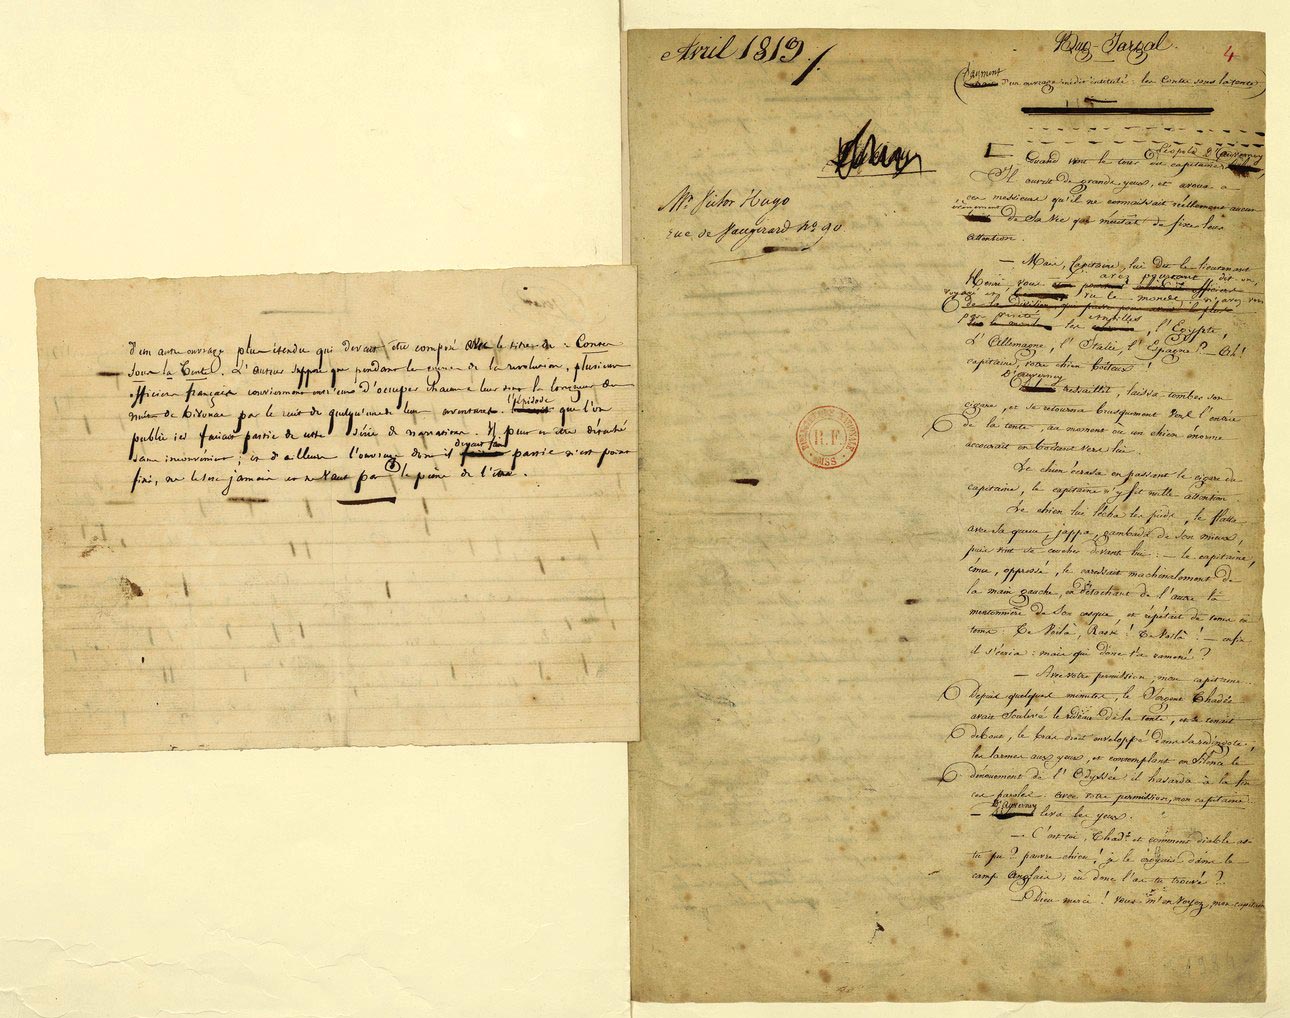 d'un autre ouvrage plus étendu qui devait être composé avec le titre de : Contes
sous la Tente. L'auteur suppose que pendant les guerres de la révolution, plusieurs
officiers français conviennent entr'eux d'occuper chacun à leur tour la longueur des
nuits de bivouac par le récit de quelqu'une de leurs aventures. l'épisode que l'on
publie ici faisait partie de cette série de narrations. Il peut en être détaché
sans inconvénient ; et d'ailleurs l'ouvrage dont il devait faire partie n'est point
fini, ne le sera jamais et ne vaut pas la peine de l'être.
Avril 1819.
Mr Victor Hugo
rue de Vaugirard no 90
BIBLIOTHEQUE NATIONALE
R.F.
MSS
Bug-Jargal.
4
(fragment d'un ouvrage inédit intitulé : les Contes sous la tente)
Quand vint le tour du capitaine Léopold d'Auverney
Il ouvrit de grands yeux, et avoua à
ces messieurs qu'il ne connaissait réellement aucun
évènement de sa vie qui méritât de fixer leur
attention.
— Mais, Capitaine, lui dit le lieutenant
Henri, vous avez pourtant, dit-on,
voyagé et vu le monde. N'avez-vous
pas visité
les Antilles, l'Egypte,
l'Allemagne, l'Italie, l'Espagne ? — Ah !
capitaine, votre chien boiteux !
D'Auverney tressaillit, laissa tomber son
cigare, et se retourna brusquement vers l'entrée
de la tente, au moment où un chien énorme
accourait en boitant vers lui.
Le chien écrasa en passant le cigare du
capitaine, le capitaine n'y fit nulle attention
Le chien lui lécha les pieds, le flatta
avec sa queue, jappa, gambada de son mieux,
puis vint se coucher devant lui : — le capitaine,
ému, oppressé, le caressait machinalement de
la main gauche, en détachant de l'autre la
mentonnière de son casque, et répétait de tems en
tems : Te voilà, Rask ! Te voilà ! — enfin
il s'écria : mais qui donc t'a ramené ?
— Avec votre permission, mon capitaine..
Depuis quelques minutes, le Sergent Thadée
avait soulevé le rideau de la tente, et se tenait
debout, le bras droit enveloppé dans sa redingote,
les larmes aux yeux, et contemplant en silence le
dénouement de l'Odyssée. il hasarda à la fin
ces paroles : avec votre permission, mon capitaine..
— D'Auverney leva les yeux.
— C'est toi, Thad. et comment diable as-
tu pu ? pauvre chien ! je le croyais dans le
camp Anglais ; où donc l'as-tu trouvé ?
— Dieu merci ! vous m'en voyez, mon capitaine